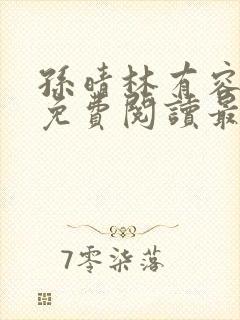 孫晴林有容
免費閱讀最
7零柒落